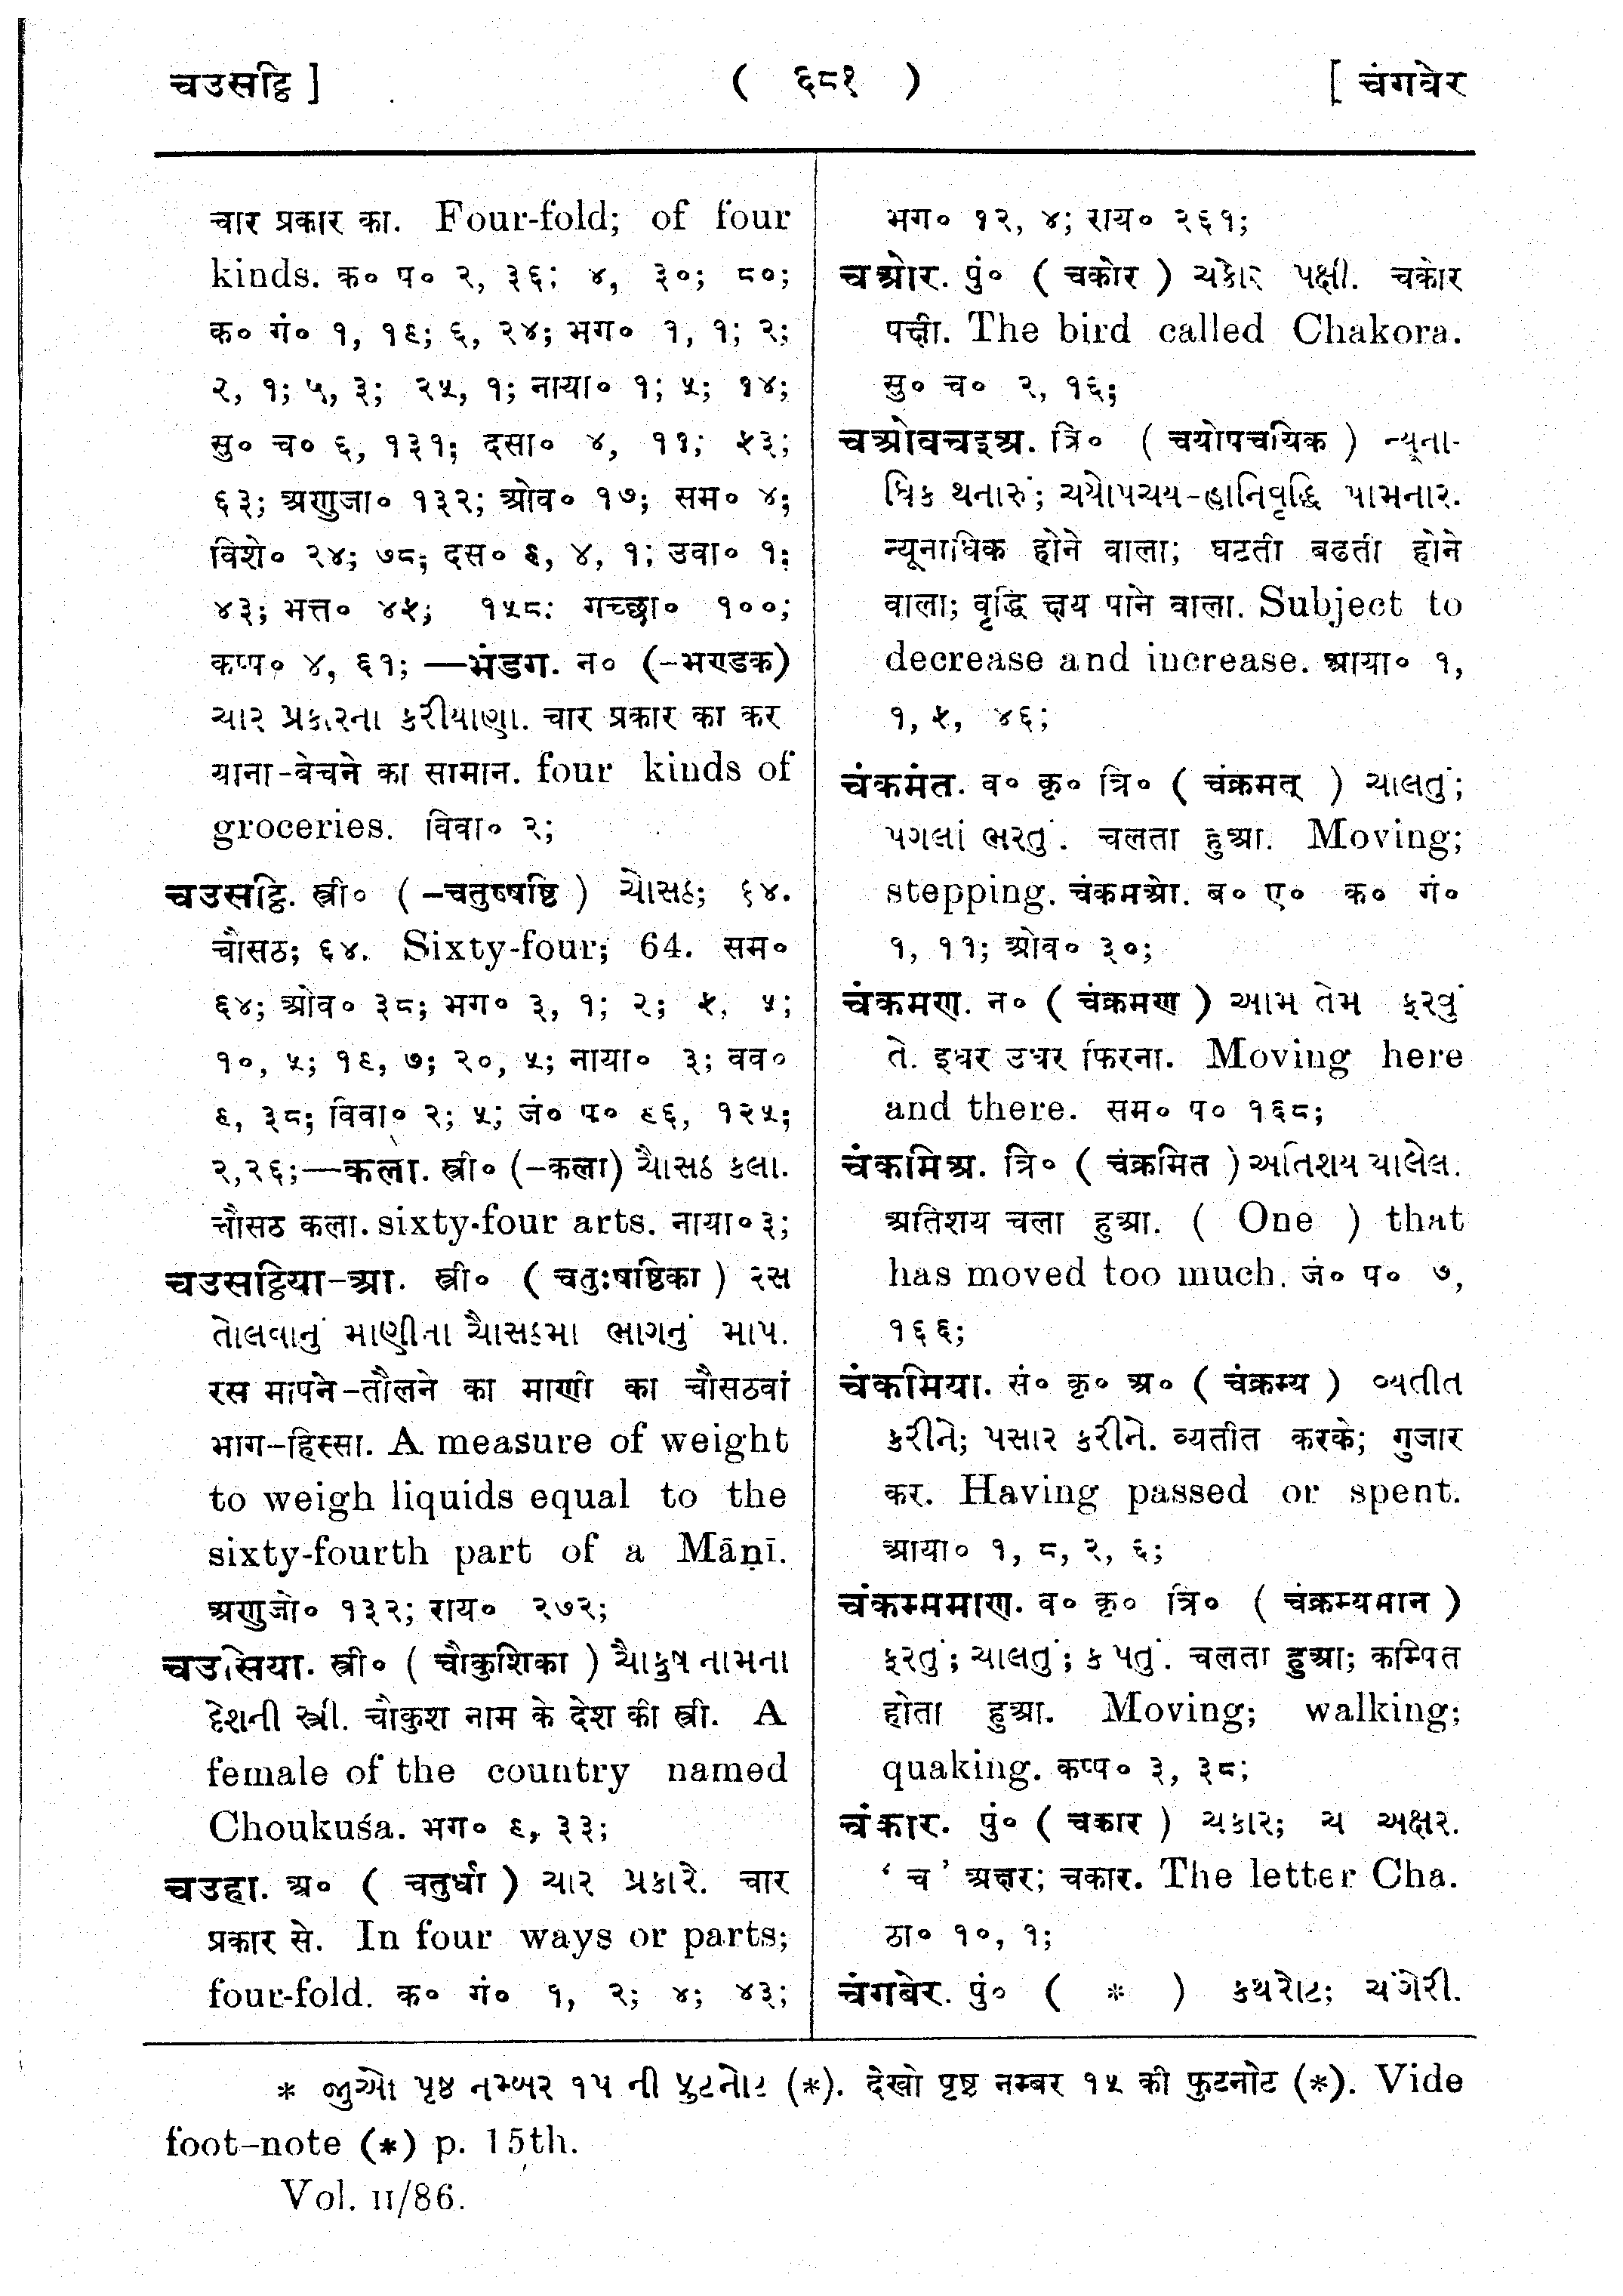 चउसट्ठि ]
( ६८१ )
[ चंगवेर
चार प्रकार का. Four-fold; of four
kinds. क० प० २, ३६; ४, ३०; ८०;
क० गं० १, १९; ६, २४; भग० १, १; २;
२, १; ५, ३; २५, १; नाया० १; ५; १४;
सु० च० ६, १३१; दसा० ४, ११; ५३;
६३; अणुजो० १३२; ओव० १७; सम० ४;
विशे० २४; ७८; दस० ६, ४, १; उवा० १;
४३; भत्त० ४५; १५८: गच्छा० १००;
कप्प० ४, ६१; —भंडग. न० (-भण्डक)
ચાર પ્રકારના કરીયાણા. चार प्रकार का कर
याना-बेचने का सामान. four kinds of
groceries. विवा० २;
चउसट्ठि. स्त्री० (-चतुष्षष्ठि) ચોસઠ; ૬૪.
चौसठ; ६४. Sixty-four; 64. सम०
६४; ओव० ३८; भग० ३, १; २; ५, ५;
१०, ५; १९, ७; २०, ५; नाया० ३; वव०
९, ३८; विवा० २; ५; जं० प० ९६, १२५;
२,२६;—कला. स्त्री० (-कला) ચોસઠ કલા.
चौसठ कला. sixty-four arts. नाया० ३;
चउसट्ठिया-आ. स्त्री० ( चतुःषष्ठिका ) રસ
તોલવાનું માણીના ચોસઠમા ભાગનું માપ.
रस मापने-तौलने का माणी का चौसठवां
भाग-हिस्सा. A measure of weight
to weigh liquids equal to the
sixty-fourth part of a Māṇī.
अणुजो० १३२; राय० २७२;
चउसिया. स्त्री० ( चौकुशिका ) ચૌકુષ નામના
દેશની સ્ત્રી. चौकुश नाम के देश की स्त्री. A
female of the country named
Choukuśa. भग० ९, ३३;
चउहा. अ० ( चतुर्धा ) ચાર પ્રકારે. चार
प्रकार से. In four ways or parts;
four-fold. क० गं० १, २; ४; ४३;
भग० १२, ४; राय० २६१;
चओर. पुं० ( चकोर ) ચકોર પક્ષી. चकोर
पक्षी. The bird called Chakora.
सु० च० २, १६;
चओवचइअ. त्रि० ( चयोपचयिक ) ન્યૂના-
ધિક થનારું; ચયોપચય-હાનિવૃદ્ધિ પામનાર.
न्यूनाधिक होने वाला; घटती बढती होने
वाला; वृद्धि क्षय पाने वाला. Subject to
decrease and increase. आया० १,
१, ५, ४६;
चंकमंत. व० कृ० त्रि० ( चंक्रमत् ) ચાલતું;
પગલાં ભરતું. चलता हुआ. Moving;
stepping. चंकमओ. ब० ए० क० गं०
१, ११; ओव० ३०;
चंकमण. न० ( चंक्रमण ) આમ તેમ ફરવું
તે. इधर उधर फिरना. Moving here
and there. सम० प० १६८;
चंकमिअ. त्रि० ( चंक्रमित ) અતિશય ચાલેલ.
अतिशय चला हुआ. ( One ) that
has moved too much. जं० प० ७,
१६६;
चंकमिया. सं० कृ० अ० ( चंक्रम्य ) વ્યતીત
કરીને; પસાર કરીને. व्यतीत करके; गुजार
कर. Having passed or spent.
आया० १, ८, २, ६;
चंकम्ममाण. व० कृ० त्रि० ( चंक्रम्यमान )
ફરતું; ચાલતું; કંપતું. चलता हुआ; कम्पित
होता हुआ. Moving; walking;
quaking. कप्प० ३, ३८;
चंकार. पुं० ( चकार ) ચકાર; ચ અક્ષર.
‘ च ’ अक्षर; चकार. The letter Cha.
ठा० १०, १;
चंगबेर. पुं० ( * ) કથરોટ; ચંગેરી.
* જુઓ પૃષ્ઠ નમ્બર ૧૫ ની ફુટનોટ (*). देखो पृष्ठ नम्बर १५ की फुटनोट (*). Vide
foot-note (*) p. 15th.
Vol. II/86.